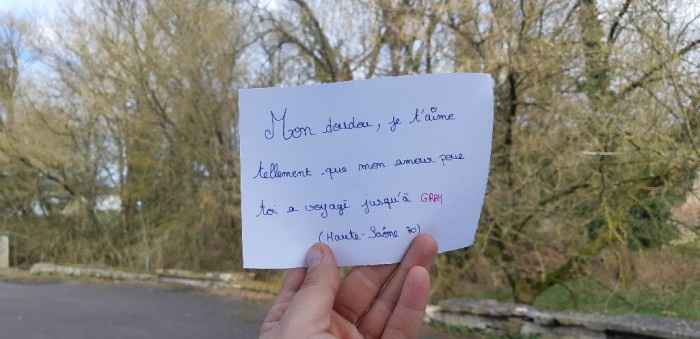 Mon doudou, je t'aime
tellement que mon amour pour
toi a voyagé jusqu'à GRAY
(Haute-Saône 70)